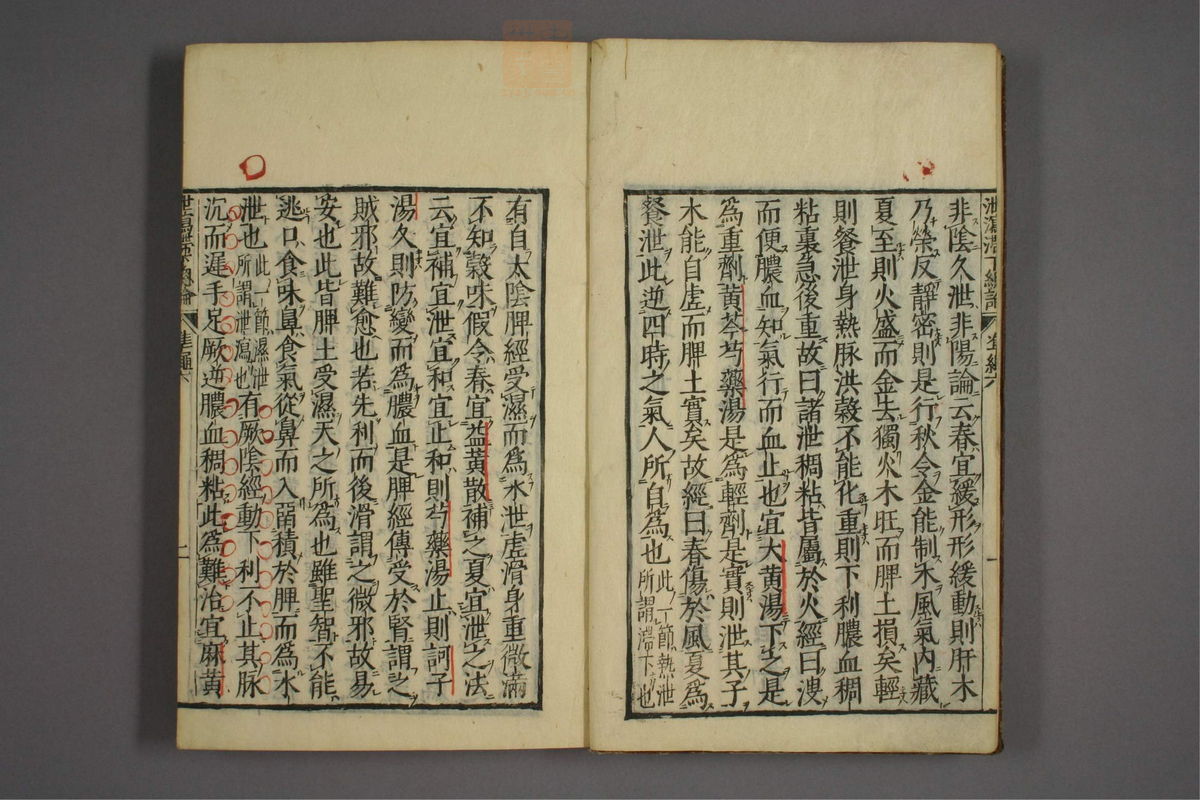 泄瀉滯下總論
準繩六
一
非陰久泄非陽論云春宜緩形形緩動則肝木
乃榮反靜密則是行秋令金能制木風氣內藏
夏至則火盛而金去獨火木旺而脾土損矣輕
則飧泄身熱脉洪穀不能化重則下利膿血稠
粘裏急後重故曰諸泄稠粘皆屬於火經曰溲
而便膿血知氣行而血止也宜大黄湯下之是
為重劑黄芩芍藥湯是為輕劑是實則泄其子
木能自虛而脾土實矣故經曰春傷於風夏為
飧泄此逆四時之氣人所自為也此一節熱泄
所謂滯下也
有自太陰脾經受濕而為水泄虛滑身重微滿
不知穀味假令春宜益黄散補之夏宜泄之法
云宜補宜泄宜和宜止和則芍藥湯止則訶子
湯久則防變而為膿血是脾經傳受於腎謂之
賊邪故難愈也若先利而後滑謂之微邪故易
安也此皆脾土受濕天之所為也雖聖智不能
逃口食味鼻食氣從鼻而入留積於脾而為水
泄也此一節濕泄
所謂泄瀉也有厥陰經動下利不止其脉
沉而遲手足厥逆膿血稠粘此為難治宜麻黄
二